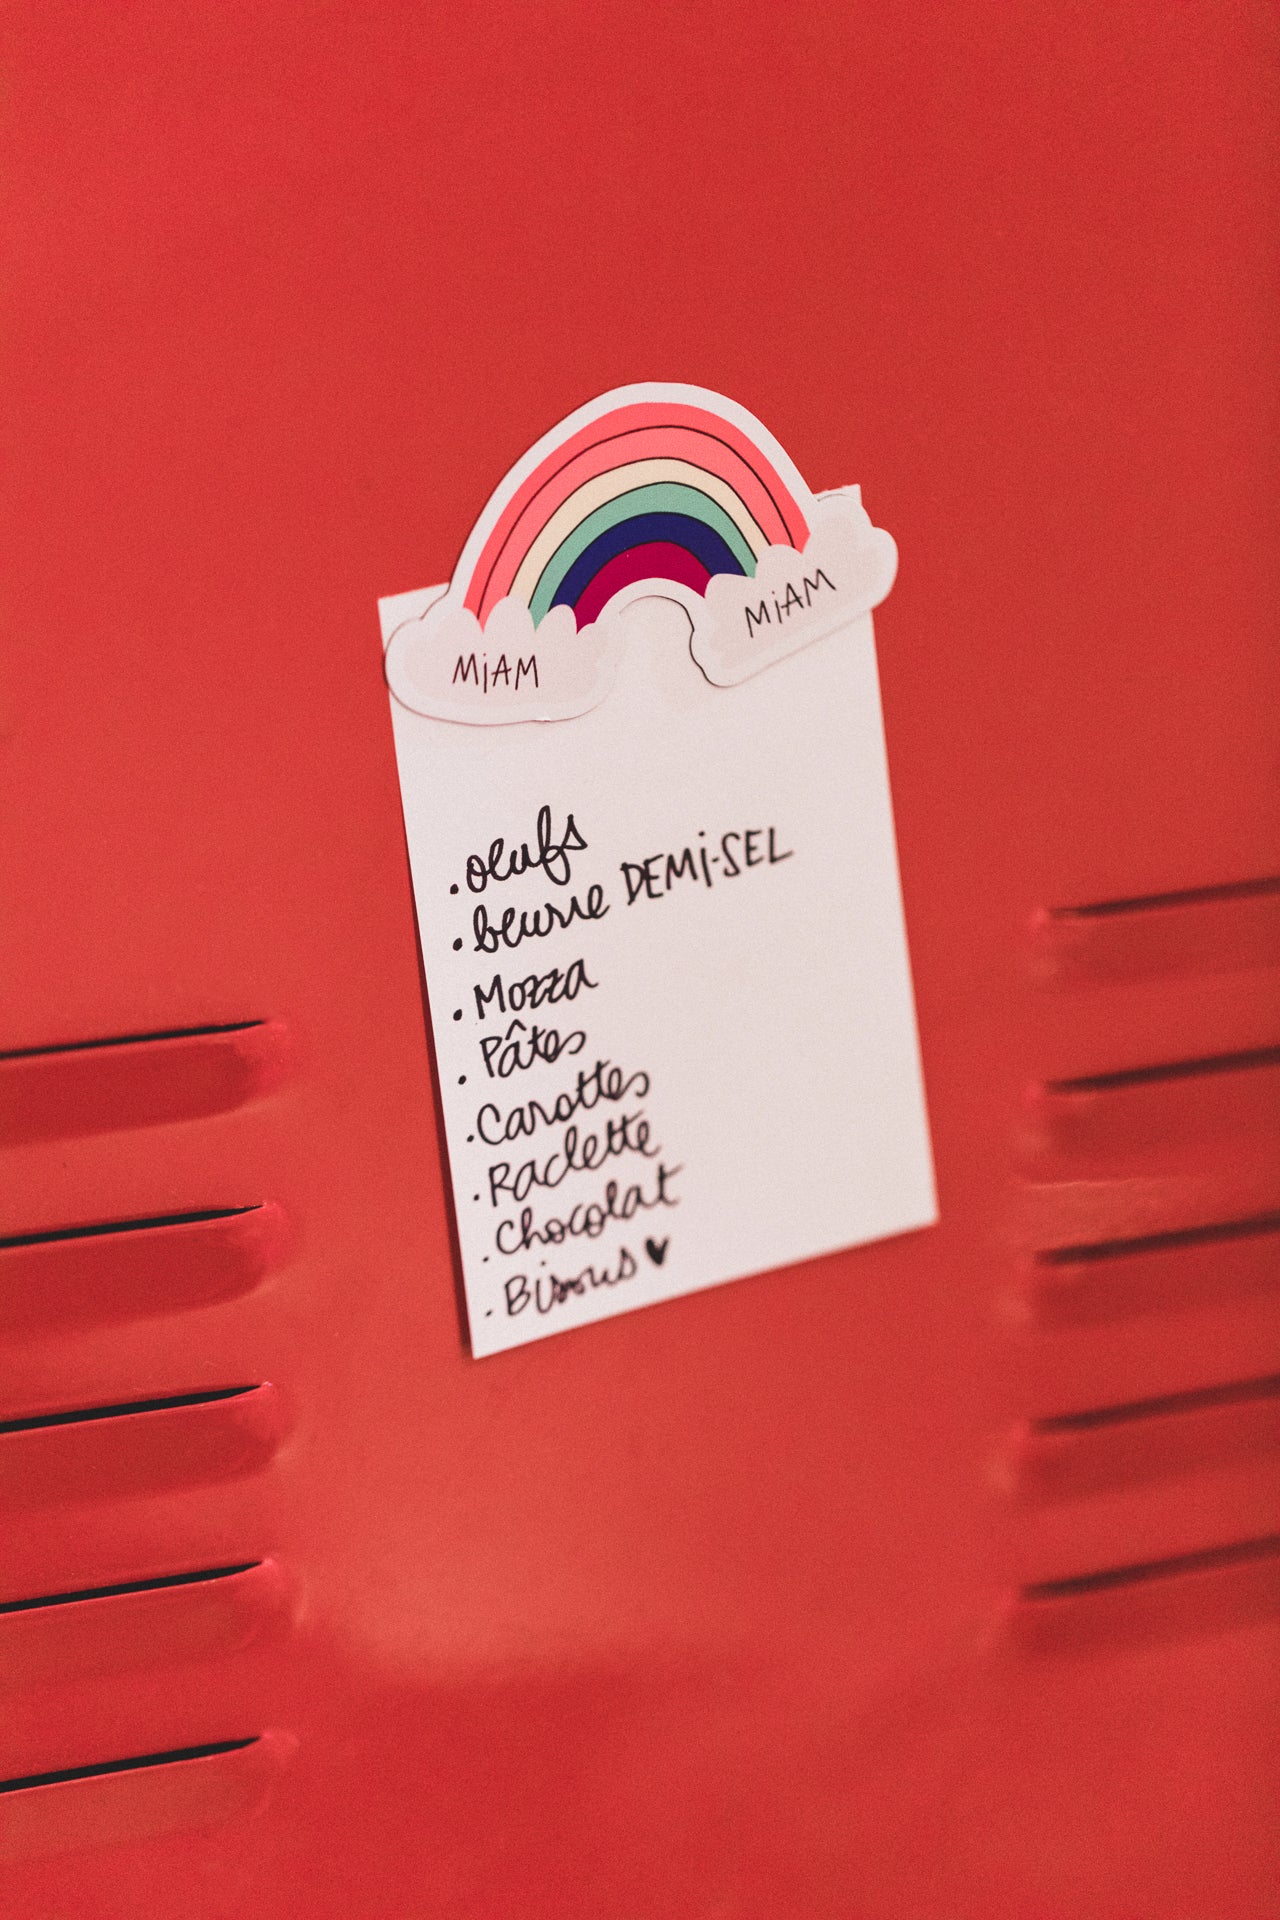 MiAM
MiAM
. oeufs
. beurre DEMi-SEL
. Mozza
. Pâtes
. Carottes
. Raclette
. Chocolat
. Bisous ♥